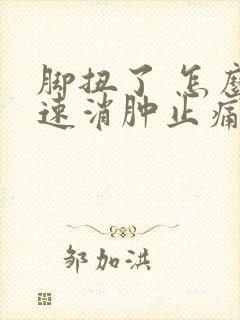 脚扭了 怎麽
速消肿止痛
邹加洪